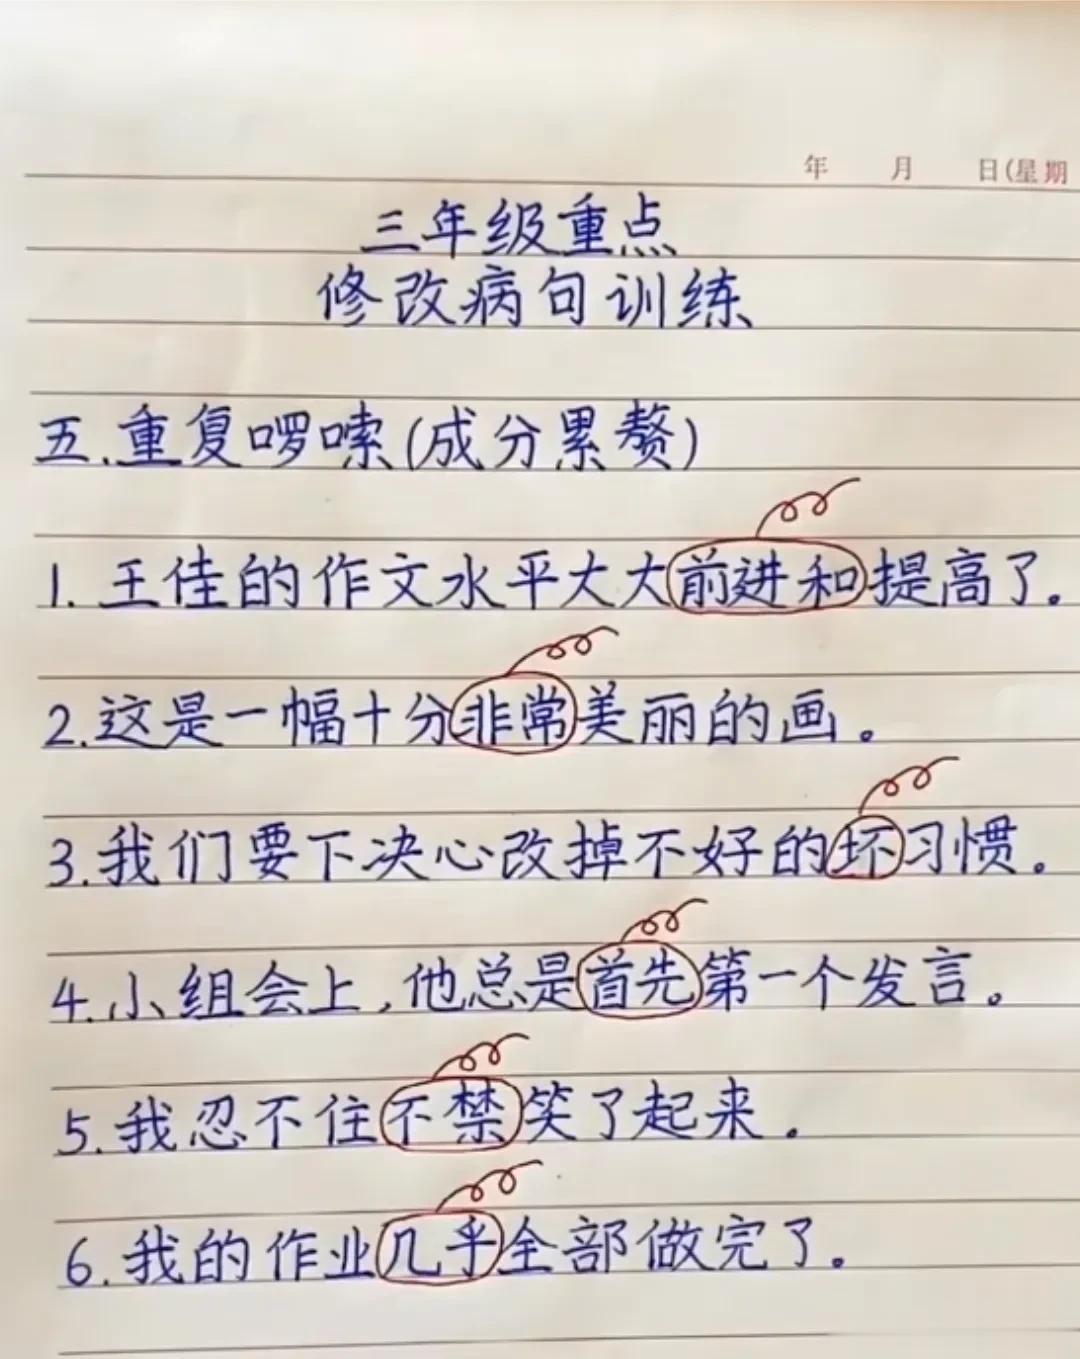 年 月 日(星期
三年级重点
修改病句训练
五.重复啰嗦(成分累赘)
1.王佳的作文水平大大前进和提高了。
2.这是一幅十分非常美丽的画。
3.我们要下决心改掉不好的坏习惯。
4.小组会上,他总是首先第一个发言。
5.我忍不住不禁笑了起来.
6.我的作业几乎全部做完了。